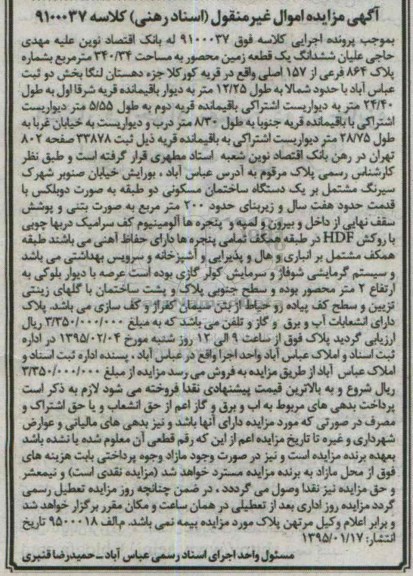 آگهی مزایده اموال غیر منقول (اسناد رهنی) کلاسه ۹۱۰۰۰۳۷
بموجب پرونده اجرایی کلاسه فوق ۹۱۰۰۰۳۷ له بانک اقتصاد نوین علیه مهدی
حاجی علیان ششدانگ یک قطعه زمین محصور به مساحت ۳۴۰/۳۴ مترمربع بشماره
پلاک ۸۶۴ فرعی از ۱۵۷ اصلی واقع در قریه کورکلا جزء دهستان لنگا بخش دو ثبت
عباس آباد با حدود شمالا به طول ۱۲/۲۵ متر به دیوار باقیمانده قریه شرقا اول به طول
۲۴/۴۰ متر به دیواریست اشتراکی باقیمانده قریه دوم به طول ۵/۵۵ متر دیواریست
اشتراکی با باقیمانده قریه جنوبا به طول ۸/۳۰ متر درب و دیواریست به خیابان غربا به
طول ۲۸/۷۵ متر دیواریست اشتراکی به باقیمانده قریه ذیل ثبت ۳۳۸۷۸ صفحه ۸۰۲
تهران در رهن بانک اقتصاد نوین شعبه استاد مطهری قرار گرفته است و طبق نظر
کارشناس رسمی پلاک مرقوم به آدرس عباس آباد ، بورایش خیابان صنوبر شهرک
سیرنگ مشتمل بر یک دستگاه ساختمان مسکونی دو طبقه به صورت دوبلکس با
قدمت حدود هفت سال و زیربنای حدود ۲۰۰ متر مربع به صورت بتنی و پوشش
سقف نهایی از داخل و بیرون و لمبه و پنجره ها آلومینیوم کف سرامیک دربها چوبی
با روکش HDF در طبقه همکف تمامی پنجره ها دارای حفاظ آهنی می باشند طبقه
همکف مشتمل بر انباری و هال و پذیرایی و آشپزخانه و سرویس بهداشتی می باشد
و سیستم گرمایشی شوفاژ و سرمایش کولر گازی بوده است عرصه با دیوار بلوکی به
ارتفاع ۲ متر محصور بوده و سطح جنوبی پلاک و پشت ساختمان با گلهای زینتی
تزیین و سطح کف پیاده رو حیاط از بتن سیمان کفراژ و کف سازی می باشد. پلاک
دارای انشعابات آب و برق و گاز و تلفن می باشد که به مبلغ ۳/۳۵۰/۰۰۰/۰۰۰ ریال
ارزیابی گردید پلاک فوق از ساعت ۹ الی ۱۲ روز شنبه مورخ ۱۳۹۵/۰۲/۰۴ در اداره
ثبت اسناد و املاک عباس آباد واحد اجرا واقع در عباس آباد ، پسنده اداره ثبت اسناد و
املاک عباس آباد از طریق مزایده به فروش می رسد مزایده از مبلغ ۳/۳۵۰/۰۰۰/۰۰۰
ریال شروع و به بالاترین قیمت پیشنهادی نقدا فروخته می شود لازم به ذکر است
پرداخت بدهی های مربوط به اب و برق و گاز اعم از حق انشعاب و یا حق اشتراک و
مصرف در صورتی که مورد مزایده دارای آنها باشد و نیز بدهی های مالیاتی و عوارض
شهرداری و غیره تا تاریخ مزایده اعم از این که رقم قطعی آن معلوم شده یا نشده باشد
بعهده برنده مزایده است و نیز در صورت وجود مازاد وجوه پرداختی بابت هزینه های
فوق از محل مازاد به برنده مزایده مسترد خواهد شد (مزایده نقدی است) و نیمعشر
و حق مزایده نیز نقدا وصول می گرددد ، در ضمن چنانچه روز مزایده تعطیل رسمی
گردد مزایده روز اداری بعد از تعطیلی در همان ساعت و مکان مقرر برگزار خواهد شد
و برابر اعلام وکیل مرتهن پلاک مورد مزایده بیمه نمی باشد. م.الف ۹۵۰۰۰۱۸ تاریخ
انتشار: ۱۳۹۵/۰۱/۱۷
مسئول واحد اجرای اسناد رسمی عباس آباد - حمیدرضا قنبری